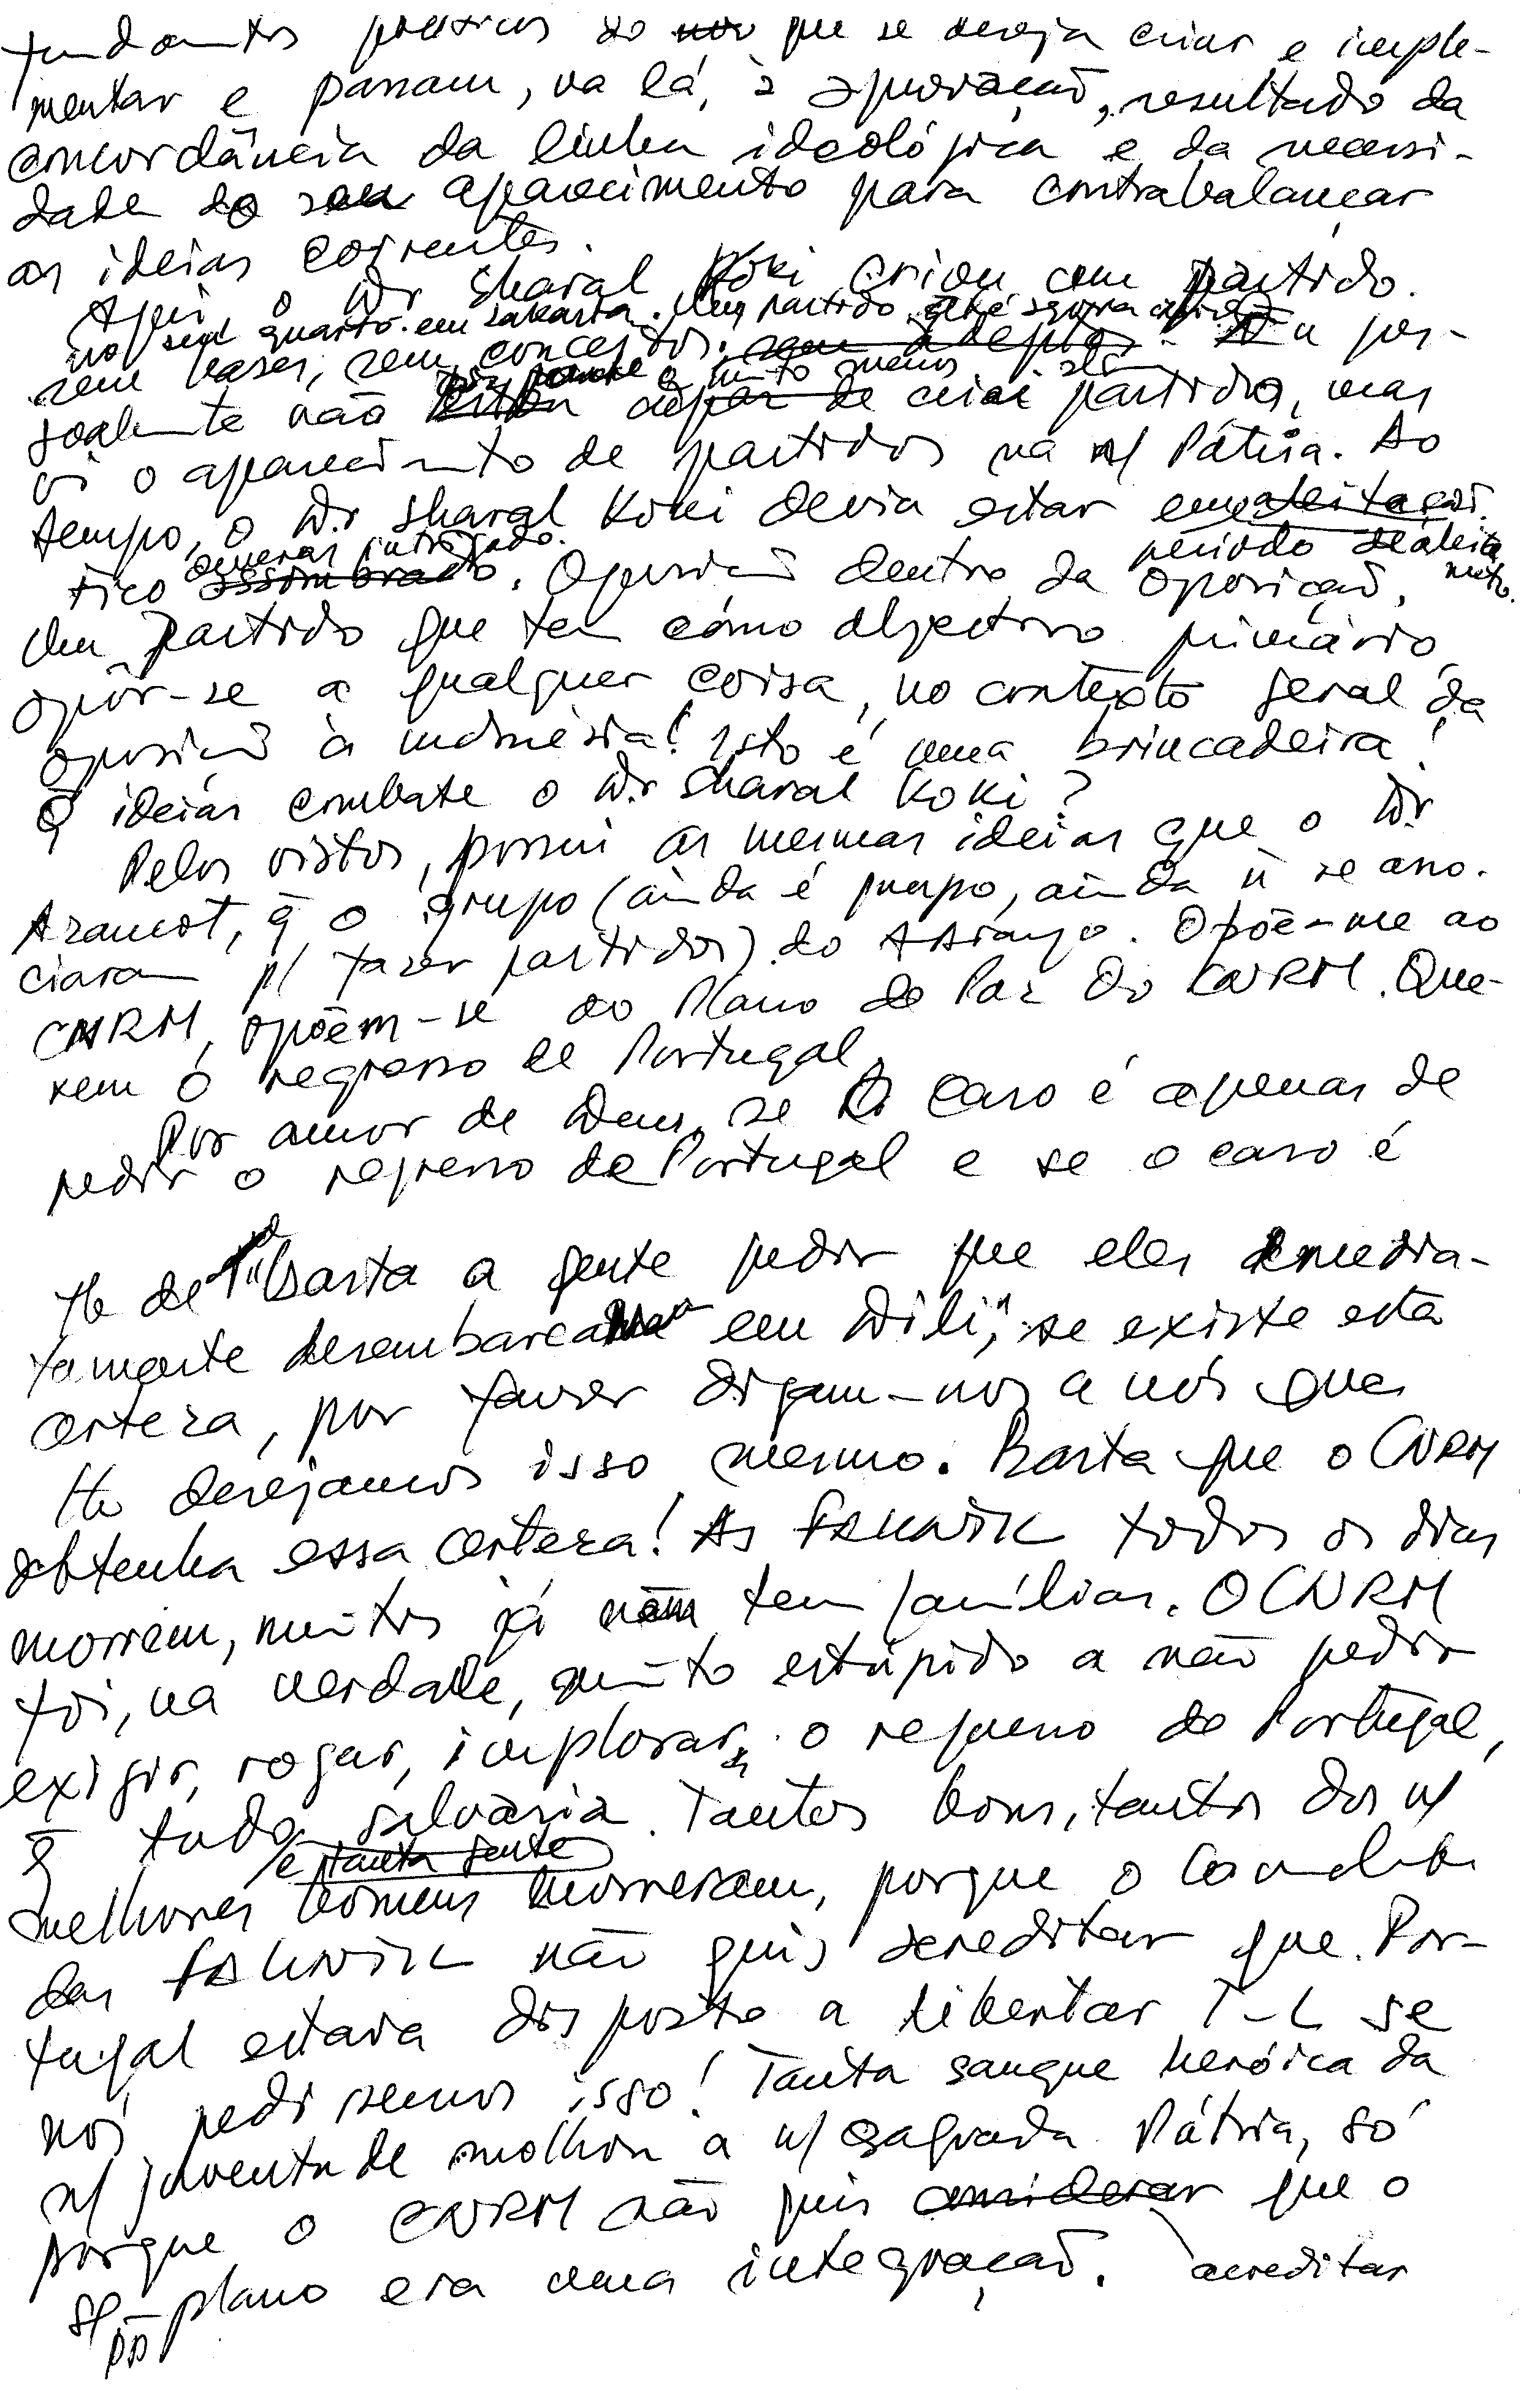 fundamentos práticos do que se deseja criar e imple-
mentar e passam, vá lá, à aprovação, resultado da
concordância da linha ideológica e da necessi-
dade do seu aparecimento para contrabalançar
as ideias correntes.
Aqui, o Dr Sharal Koki criou um partido
no seu quarto em Jakarta. Um partido, até agora
sem bases, sem conceitos, sem adeptos. Eu pes-
soalmente não criei partidos, mas
vi o aparecimento de partidos na n/ Pátria. Ao
tempo, o Dr Sharal Koki devia estar em
período de aleita
mento.
Fico deveras intrigado. Oposição dentro da oposição.
Um partido que tem como objectivo primário
opôr-se a qualquer coisa, no contexto geral da
oposição à indonésia! Isto é uma brincadeira!
Q̄ ideias combate o Dr Sharal Koki?
Pelos vistos, possui as mesmas ideias que o Dr
Aramot, q̄ o grupo (ainda é grupo, ainda ñ se asso-
ciaram p/ fazer partidos) do AAraújo. Opõe-me ao
CNRM, opõem-se ao Plano de Paz do CNRM. Que-
rem o regresso de Portugal.
Por amor de Deus, se o caso é apenas de
pedir o regresso de Portugal e se o caso é
tb de "basta a gente pedir que eles imedia-
tamente desembarcam em Dili", se existe esta
certeza, por favor digam-nos a nós que
tb desejamos isso mesmo. Basta que o CNRM
obtenha essa certeza! As FALINTIL todos os dias
morrem, muitos já nem tem famílias. O CNRM
foi, na verdade, muito estúpido a não pedir
exigir, rogar, implorar, o regresso de Portugal,
q̄ tudo salvaria. Tantos bons, tantos dos n/
e tanta gente
melhores homens morreram, porque o Comando
das FALINTIL não quis acreditar que Por-
tugal estava disposto a libertar T-L se
nós pedissemos isso! Tanta sangue heróica da
n/ juventude molhou a n/ sagrada Pátria, só
porque o CNRM não quis considerar que o
plano era uma integração. acreditar